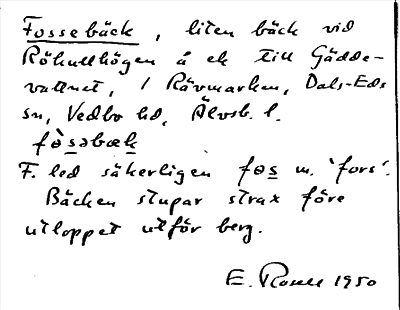 Fossebäck, liten bäck vid
Rökullhögen å ek till Gädde-
vattnet, i Rävmarken, Dals-Eds
sn, Vedbo hd, Älvsb. l.
fɵ̀səbæk
F. led säkerligen fɵs m. 'fors'.
Bäcken stupar strax före
utloppet utför berg.
E. Rosell 1950